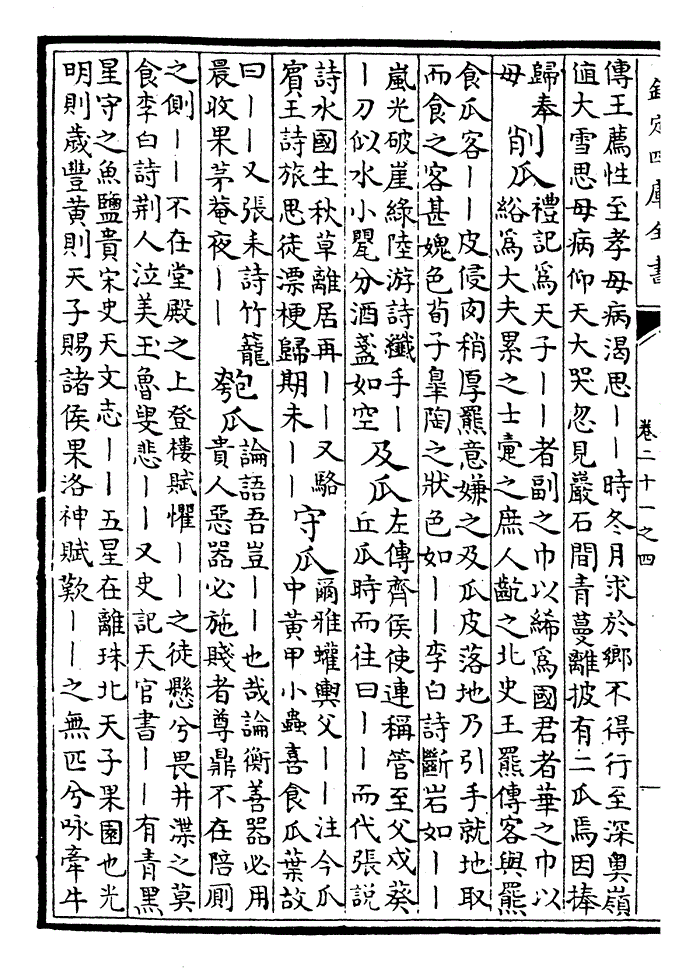 欽定四庫全書
卷二十一之四
一
傳王薦性至孝母病渴思丨丨時冬月求於鄉不得行至深奥嶺
值大雪思母病仰天大哭忽見巖石間青蔓離披有二瓜焉因捧
歸奉
母
削瓜
禮記為天子丨丨者副之巾以絺為國君者華之巾以
綌為大夫累之士疐之庶人齕之北史王羆傳客與羆
食瓜客丨丨皮侵肉稍厚羆意嫌之及瓜皮落地乃引手就地取
而食之客甚媿色荀子臯陶之狀色如丨丨李白詩斷岩如丨丨
嵐光破崖綠陸游詩纖手丨
丨刀似水小甖分酒盞如空
及瓜
左傳齊侯使連稱管至父戍葵
丘瓜時而往曰丨丨而代張説
詩水國生秋草離居再丨丨又駱
賔王詩旅思徒漂梗歸期未丨丨
守瓜
爾雅蠸輿父丨丨注今瓜
中黄甲小蟲喜食瓜葉故
曰丨丨又張耒詩竹籠
晨收果茅菴夜丨丨
匏瓜
論語吾豈丨丨也哉論衡善器必用
貴人惡器必施賤者尊鼎不在陪厠
之側丨丨不在堂殿之上登樓賦懼丨丨之徒懸兮畏井渫之莫
食李白詩荆人泣美玉魯叟悲丨丨又史記天官書丨丨有青黑
星守之魚鹽貴宋史天文志丨丨五星在離珠北天子果園也光
明則歲豐黄則天子賜諸侯果洛神賦歎丨丨之無匹兮咏牽牛